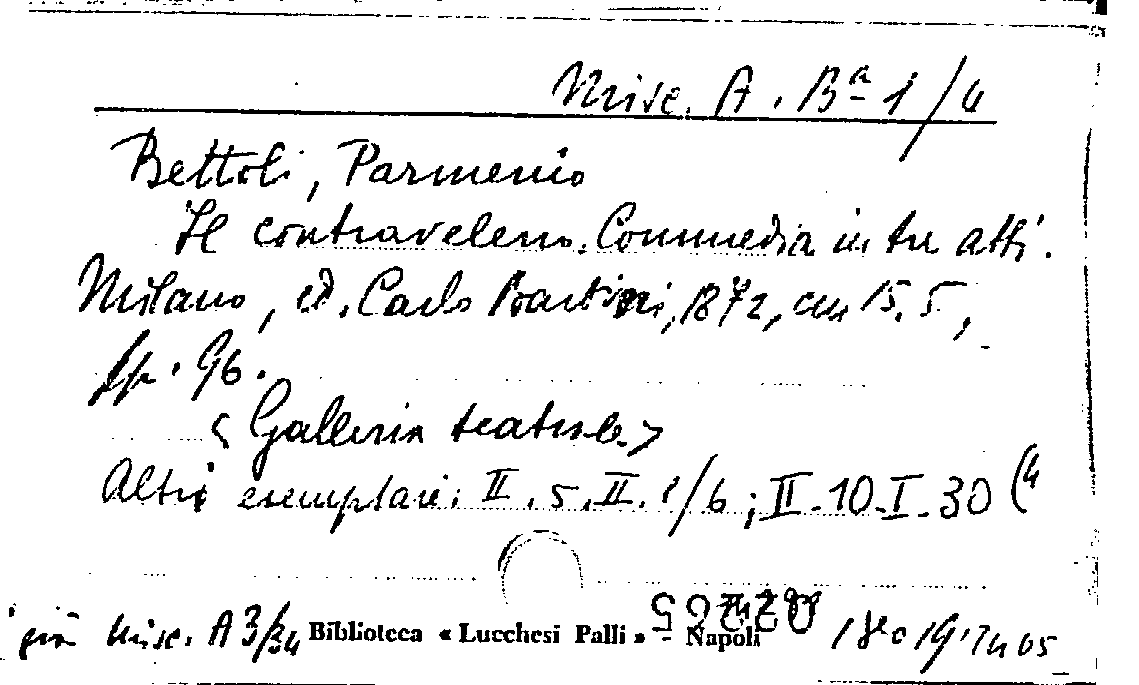 Misc. A. Bª 1/4
Bettoli, Parmenio
Il contraveleno. Commedia in tre atti.
Milano, ed. Carlo Barbini, 1872, cm 15.5,
pp. 96.
< Galleria teatrale >
Altri esemplari: II. 5. II. 1/6; II-10-I-30 (4
già Misc. A 3/34 Biblioteca « Lucchesi Palli » - Napoli